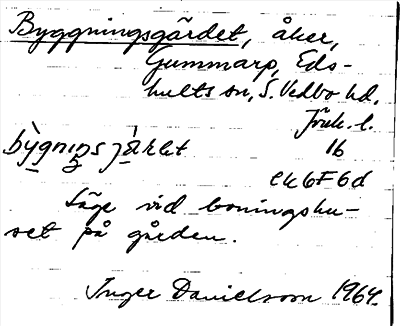 Byggningsgärdet, åker,
Gummarp, Eds-
hults sn, S. Vedbo hd.
Jönk. l.
bygnings 1b
ek6F6d
Läge vid boningshu-
set på gården.
Inger Danielsson 1964.